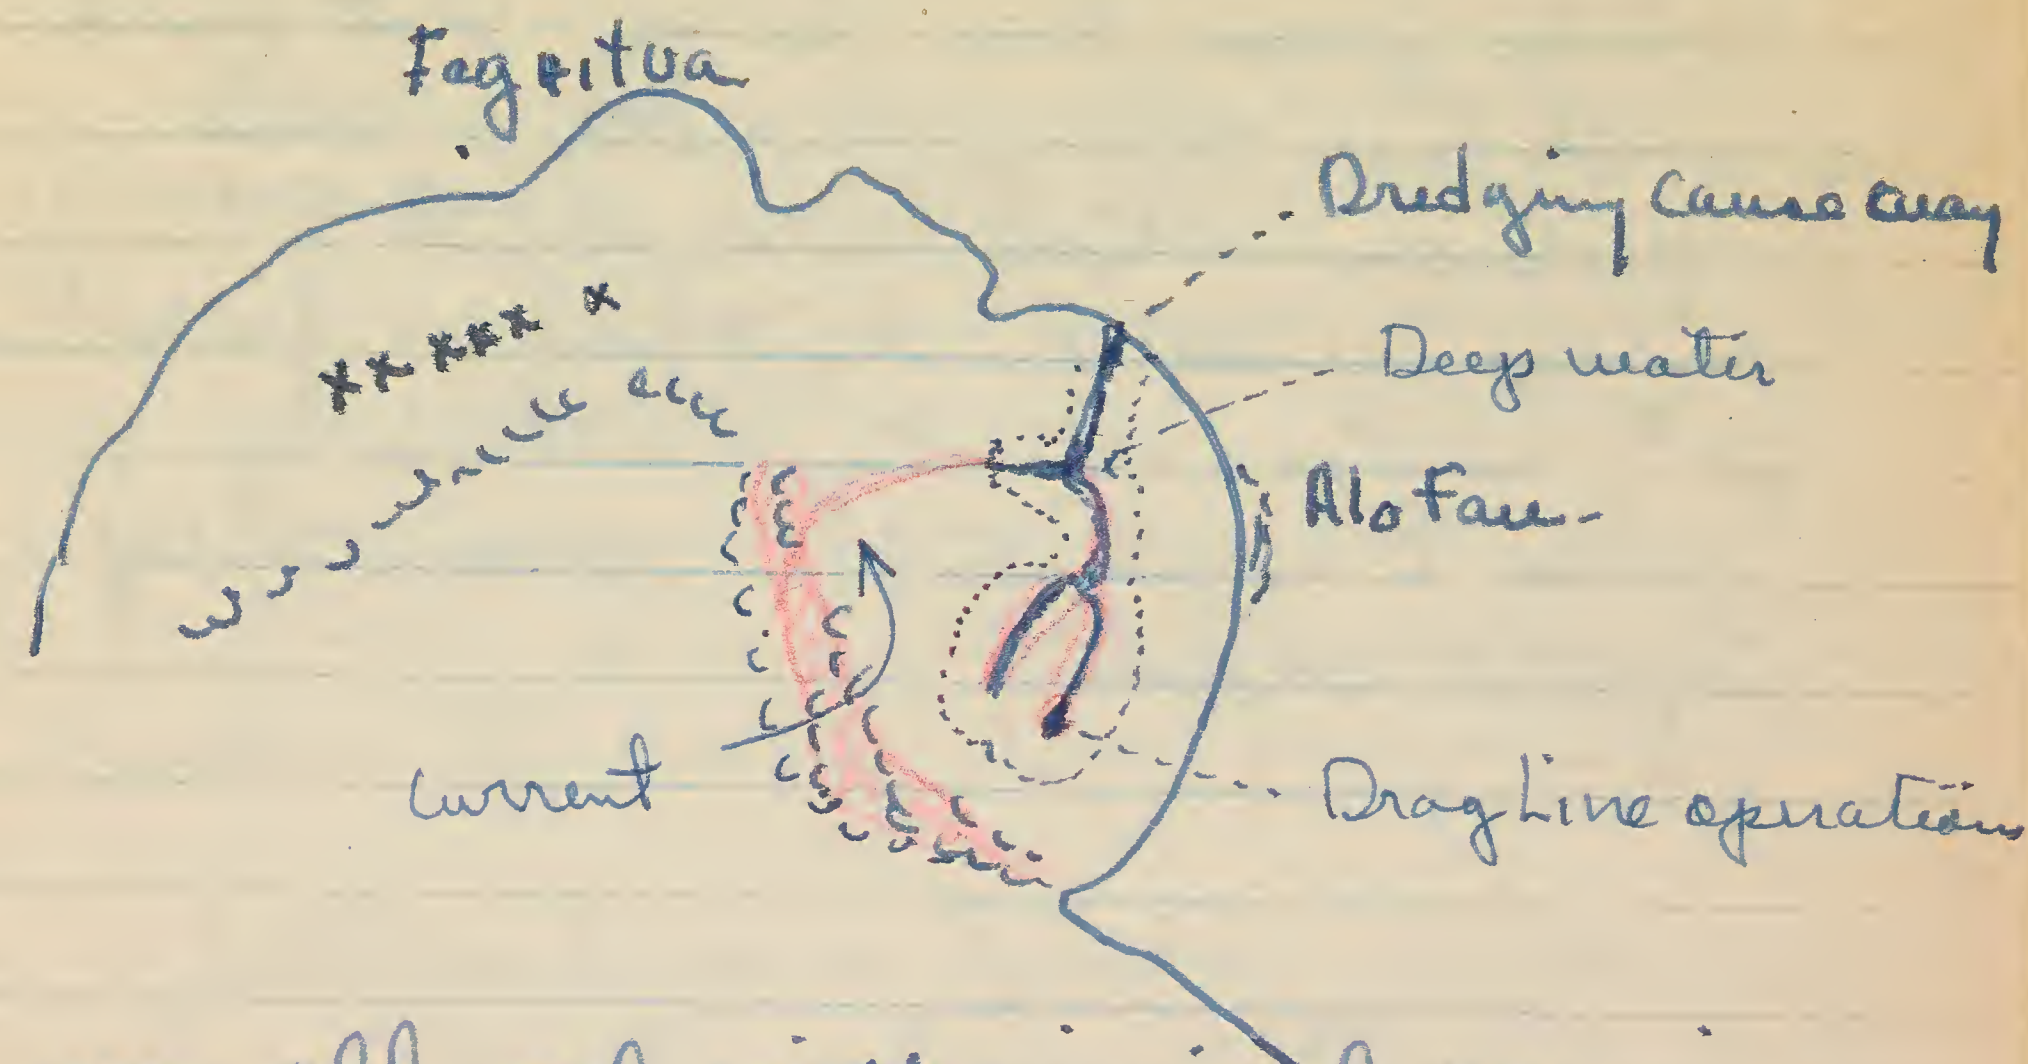 Fagaitua
Dredging Causeway
xx xxxx x
Deep water
Alofau-
Current
Drag Line operations